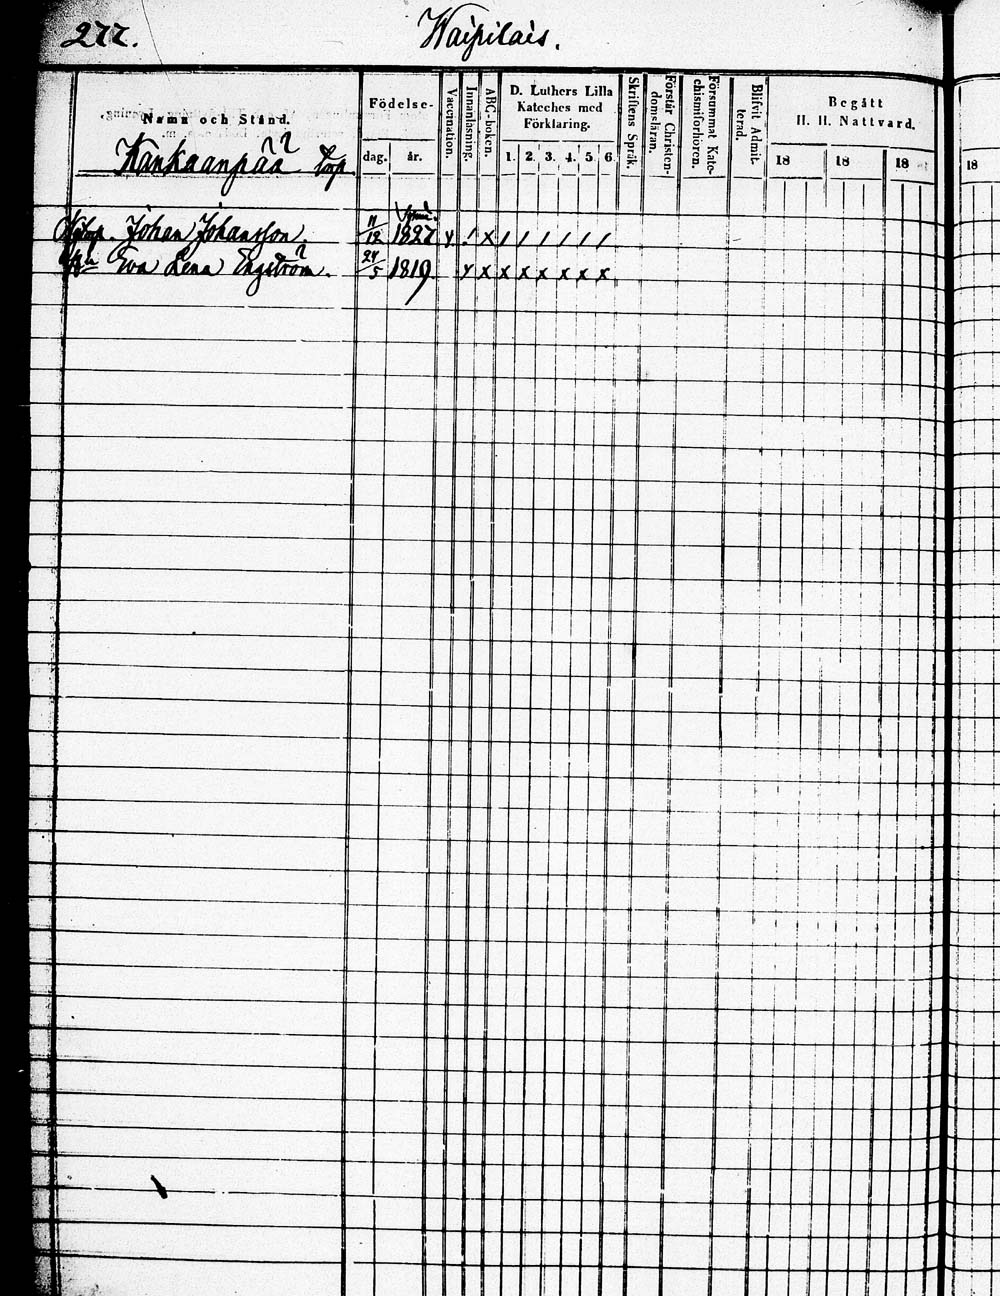 277. Waipilais.
Namn och Stånd. Födelse- dag. år. Vaccination. Innanläsning. ABC-boken. D. Luthers Lilla Kateches med Förklaring. 1. 2. 3. 4. 5. 6. Skriftens Språk. Förstår Christendomsläran. Försummat Katechismiförhören. Blifvit Admitterad. Begått H. H. Nattvard. 18 18 18 18
Kankaanpää Torp
Johan Johansson 11/12 1827 y / x / / / / / /
Eva Lena Engström. 24/5 1819 y x x x x x x x